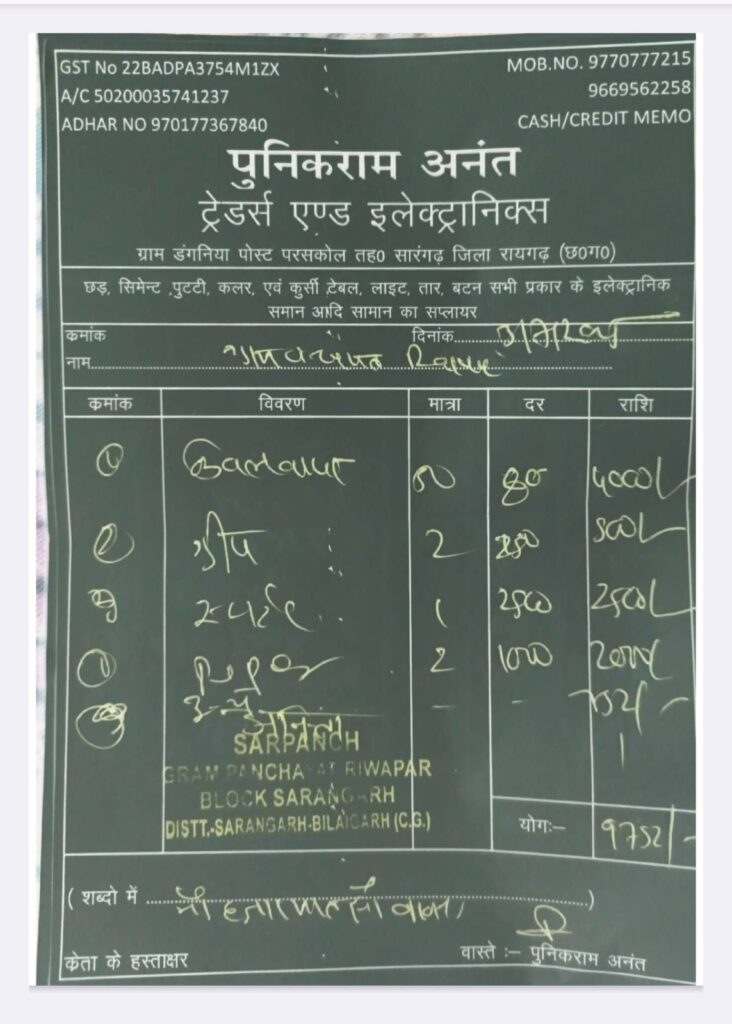 GST No 22BADPA3754M1ZX
MOB.NO. 9770777215
A/C 50200035741237
9669562258
ADHAR NO 970177367840
CASH/CREDIT MEMO
पुनिकराम अनंत
ट्रेडर्स एण्ड इलेक्ट्रानिक्स
ग्राम डंगनिया पोस्ट परसकोल तह0 सारंगढ़ जिला रायगढ़ (छ0ग0)
छड़, सिमेन्ट ,पुटटी, कलर, एवं कुर्सी टेबल, लाइट, तार, बटन सभी प्रकार के इलेक्ट्रानिक
समान आदि सामान का सप्लायर
कमांक
दिनांक
नाम
कमांक विवरण मात्रा दर राशि
① 50 80 4000/-
② ग्रीप 2 250 500/-
1 2500 2500/-
2 1000 2000/-
अनिता
SARPANCH
GRAM PANCHAYAT RIWAPAR
BLOCK SARANGARH
DISTT.-SARANGARH-BILAIGARH (C.G.)
योगः– 9752/-
( शब्दो में नौ हजार सात सौ बावन )
केता के हस्ताक्षर
वास्ते :– पुनिकराम अनंत